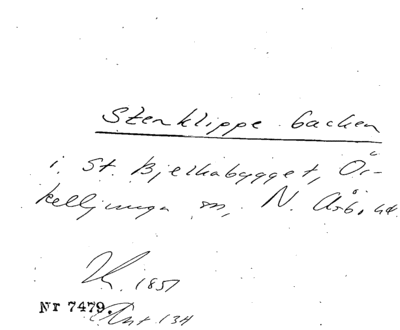 Stenklippe backen
i St. Bjelkabygget, Ör-
kelljunga sn, N. Åsbo hd.
1851
Nr 7479.
134